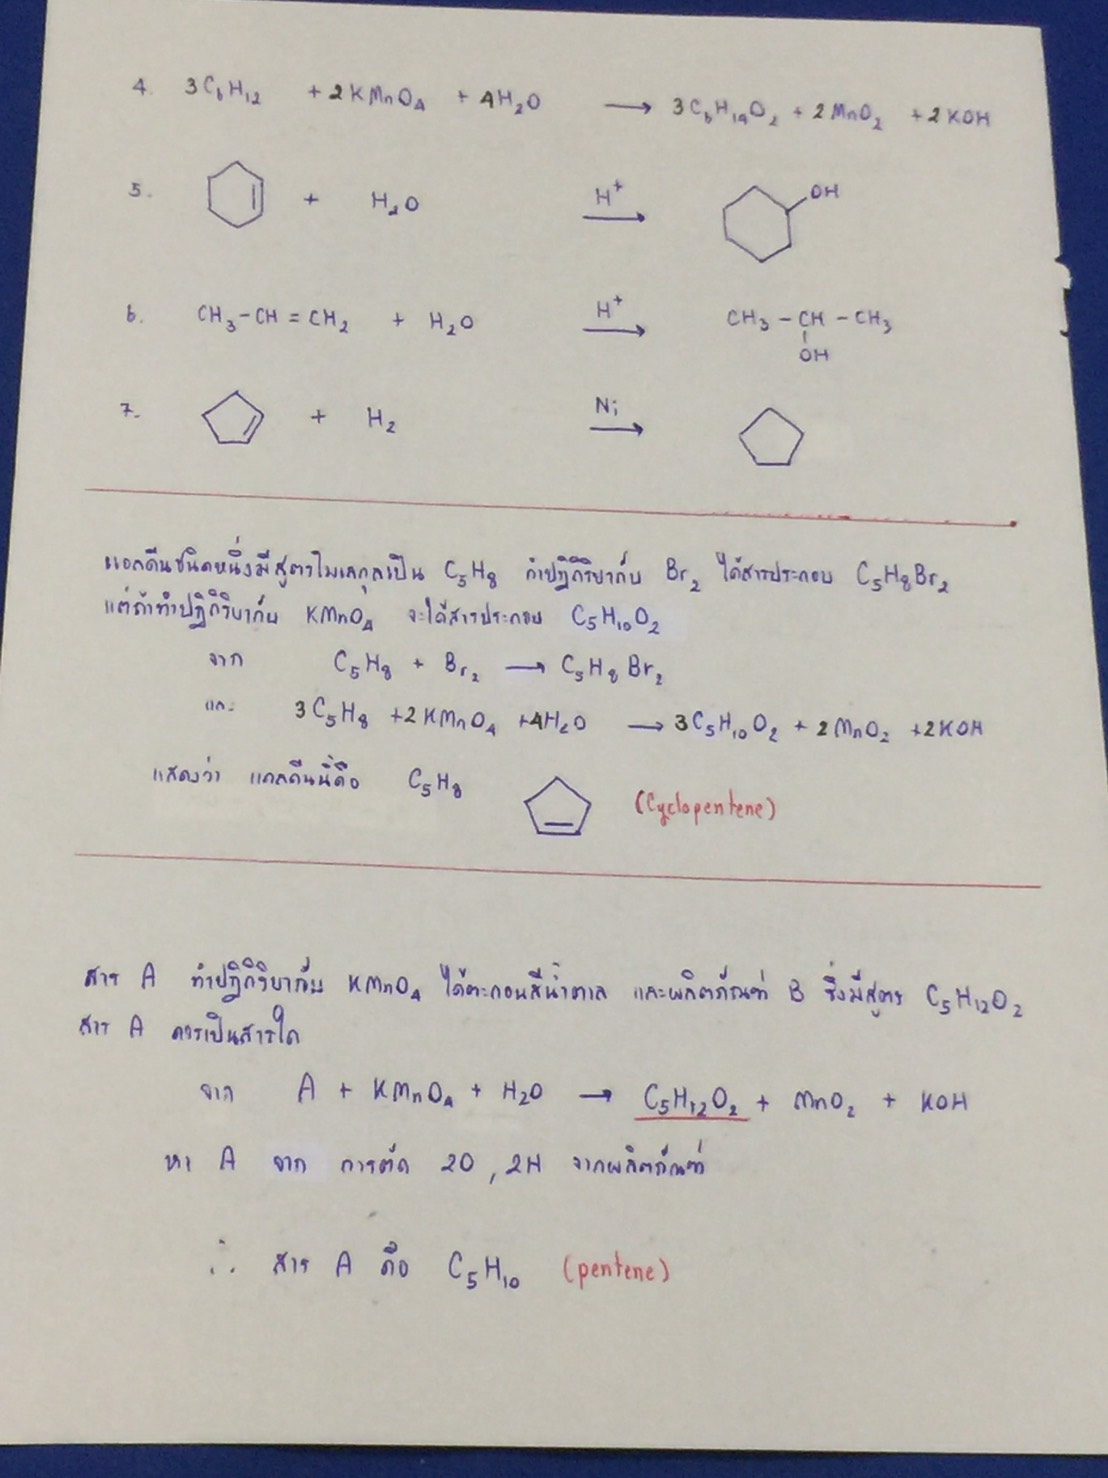 4. 3C₆H₁₂ + 2KMnO₄ + 4H₂O ⟶ 3C₆H₁₄O₂ + 2MnO₂ + 2KOH
5. + H₂O H⁺ ⟶ OH
6. CH₃-CH=CH₂ + H₂O H⁺ ⟶ CH₃-CH-CH₃
OH
7. + H₂ Ni ⟶
แอลคีนชนิดหนึ่งมีสูตรโมเลกุลเป็น C₅H₈ ทำปฏิกิริยากับ Br₂ ได้สารประกอบ C₅H₈Br₂
แต่ถ้าทำปฏิกิริยากับ KMnO₄ จะได้สารประกอบ C₅H₁₀O₂
จาก C₅H₈ + Br₂ ⟶ C₅H₈Br₂
และ 3C₅H₈ +2KMnO₄ +4H₂O ⟶ 3C₅H₁₀O₂ + 2MnO₂ +2KOH
แสดงว่า แอลคีนนี้คือ C₅H₈ (Cyclopentene)
สาร A ทำปฏิกิริยากับ KMnO₄ ได้ตะกอนสีน้ำตาล และผลิตภัณฑ์ B ซึ่งมีสูตร C₅H₁₂O₂
สาร A ควรเป็นสารใด
จาก A + KMnO₄ + H₂O → C₅H₁₂O₂ + MnO₂ + KOH
หา A จาก การตัด 2O , 2H จากผลิตภัณฑ์
∴ สาร A คือ C₅H₁₀ (pentene)